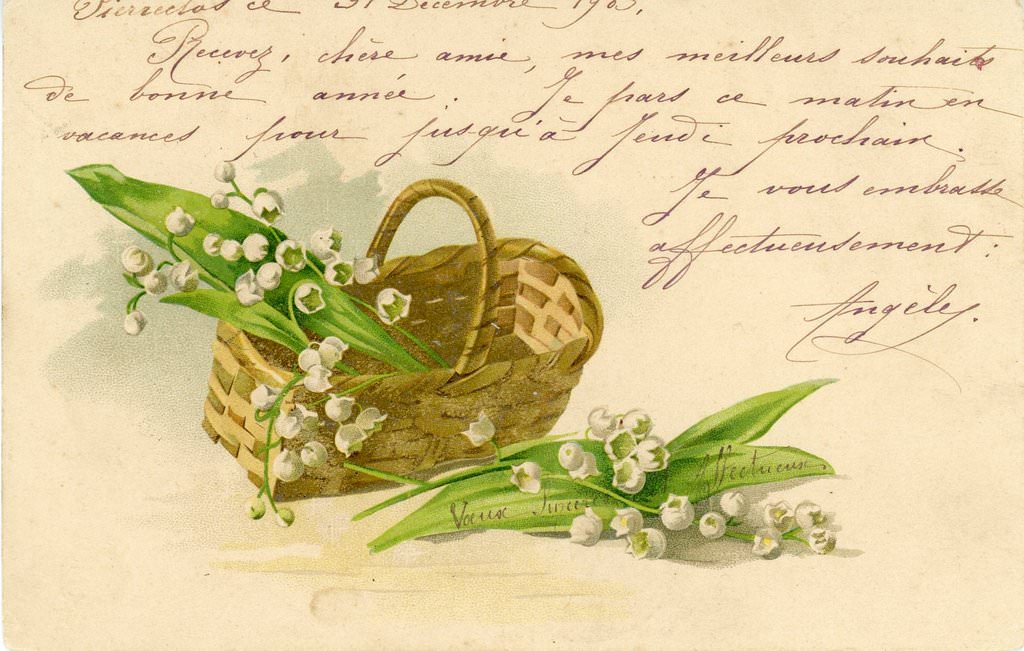 ce 31 Décembre 190
Recevez, chère amie, mes meilleurs souhaits
de bonne année. Je pars ce matin en
vacances pour jusqu'à Jeudi prochain.
Je vous embrasse
affectueusement:
Angèle.
Vœux Affectueux